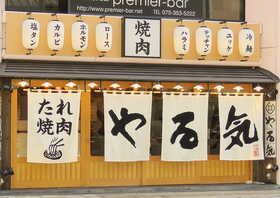 premier-bar
http://www.premier-bar.net TEL 075-353-5222
塩タン
カルビ
ホルモン
ロース
焼肉
ハラミ
テッチャン
ユッケ
冷麺
たれ
焼肉
やる気
やる気